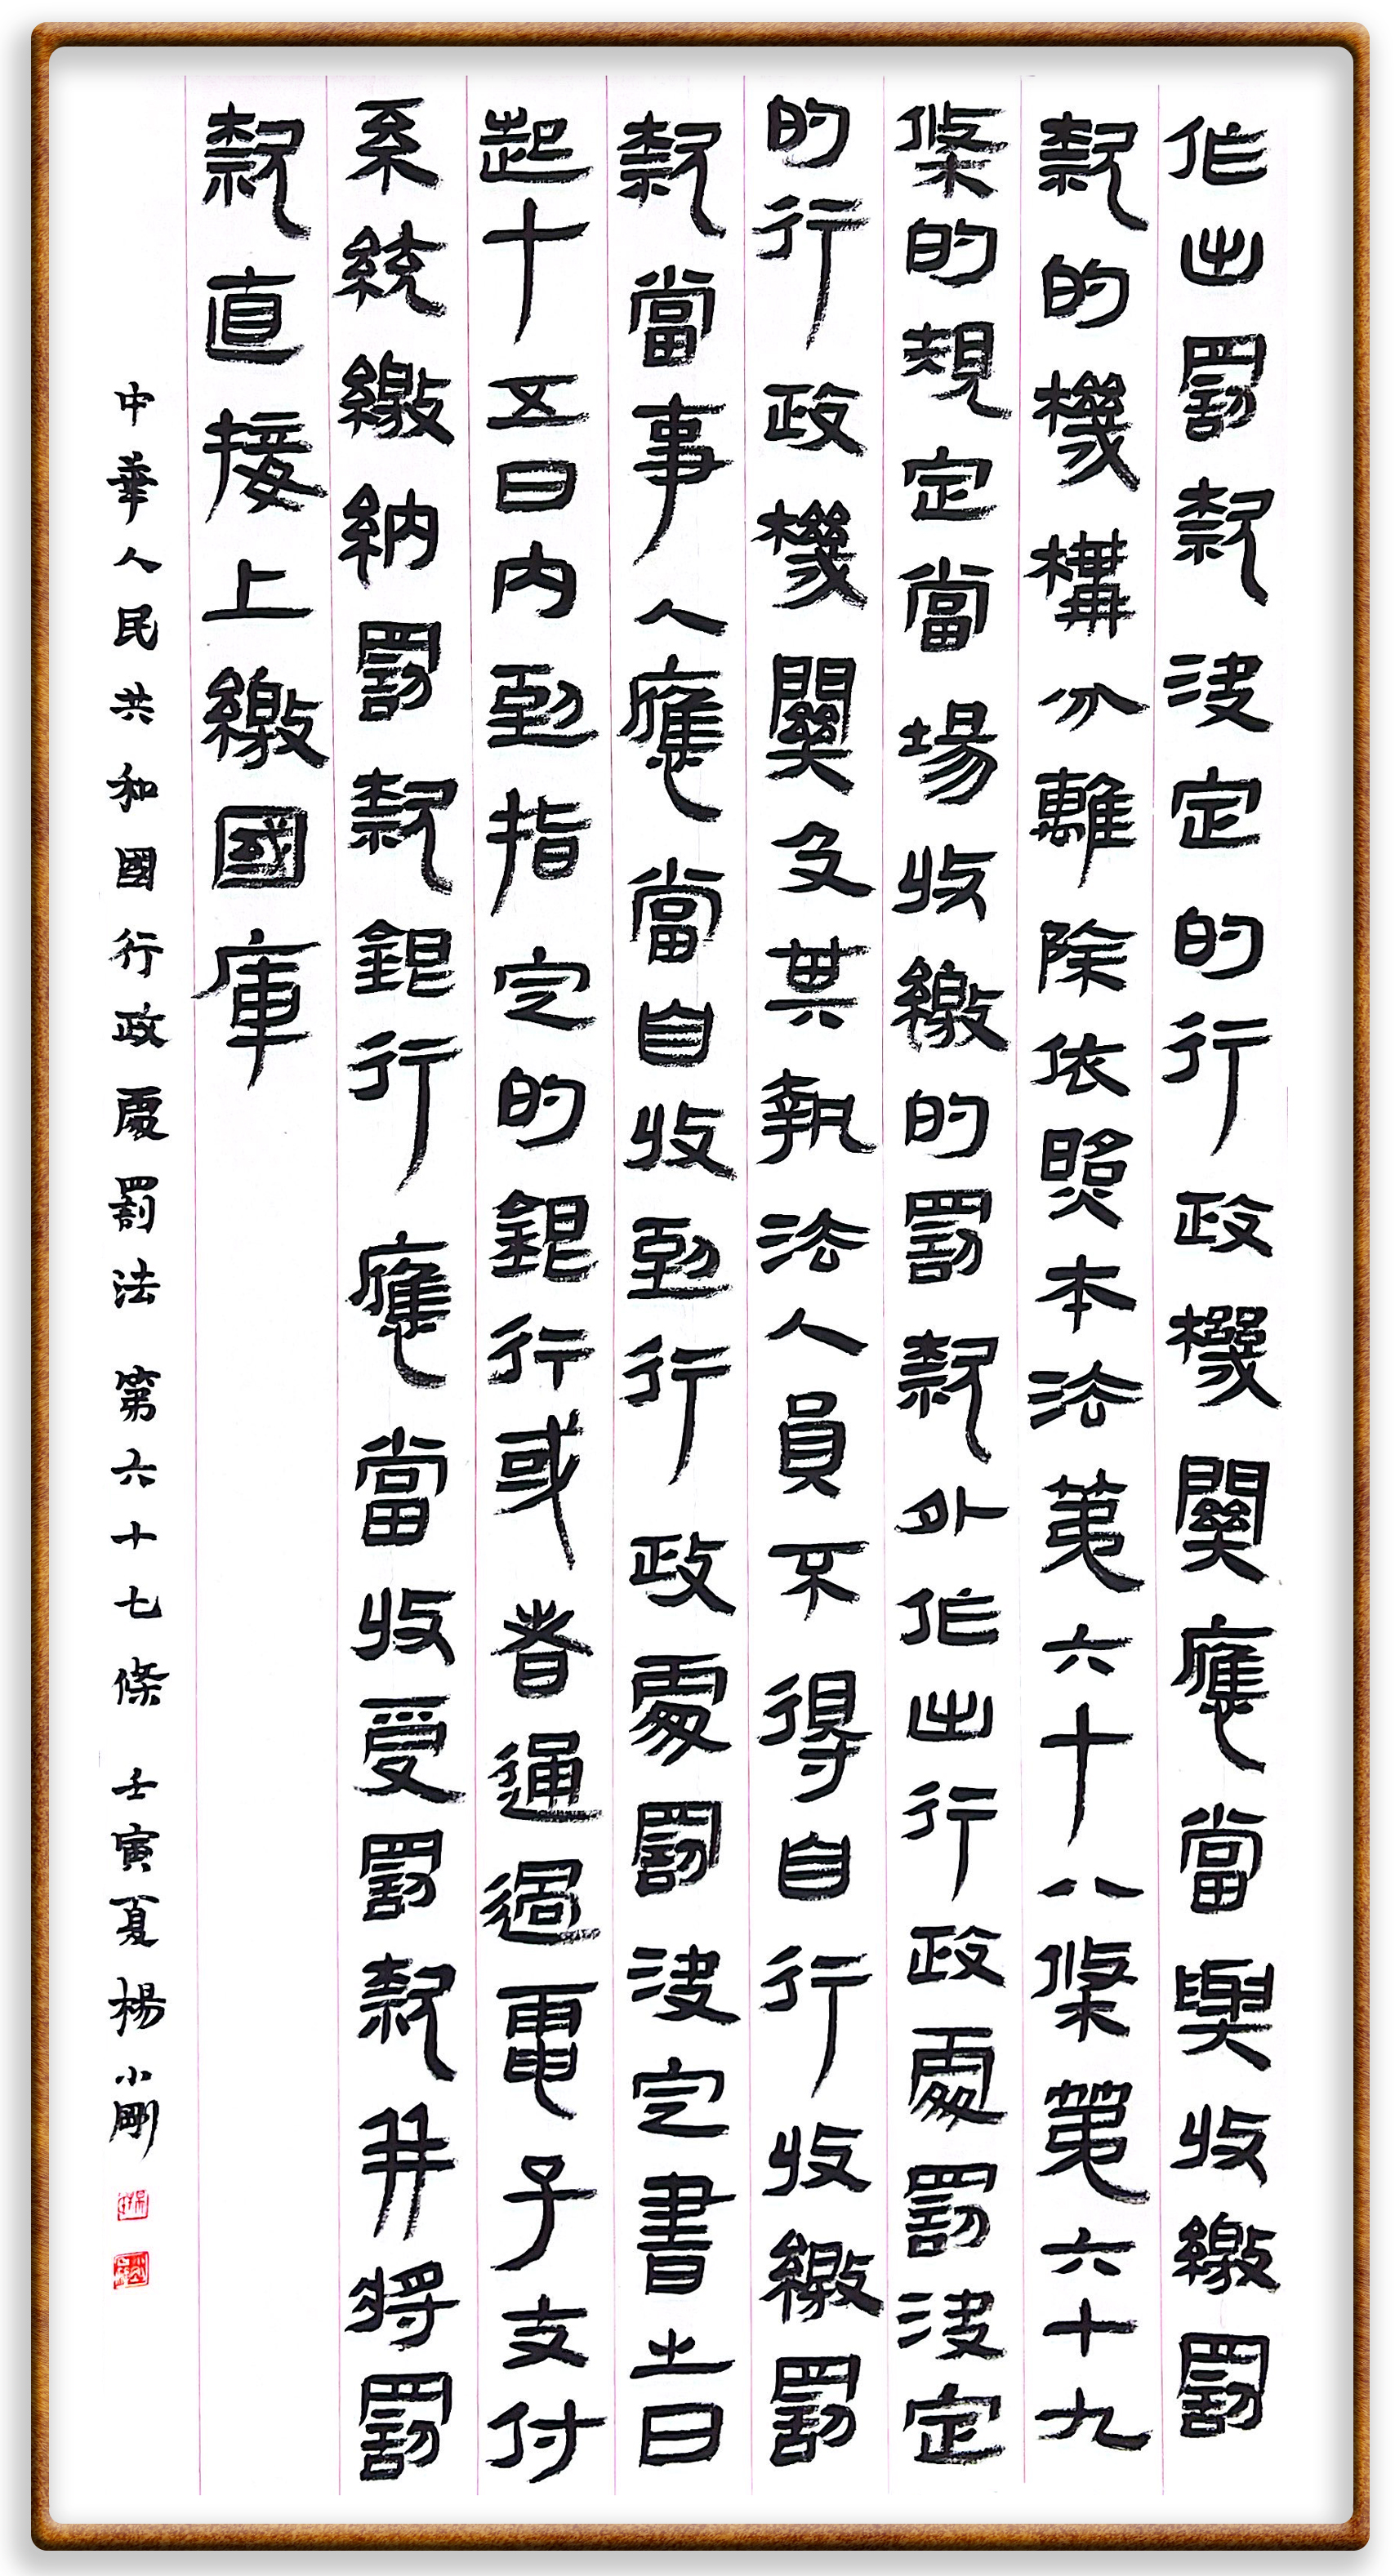 作出罰款決定的行政機關應當與收繳罰
款的機構分離除依照本法第六十八條第六十九
條的規定當場收繳的罰款外作出行政處罰決定
的行政機關及其執法人員不得自行收繳罰
款當事人應當自收到行政處罰決定書之日
起十五日內到指定的銀行或者通過電子支付
系統繳納罰款銀行應當收受罰款并將罰
款直接上繳國庫
中華人民共和國行政處罰法 第六十七條 壬寅夏楊小剛